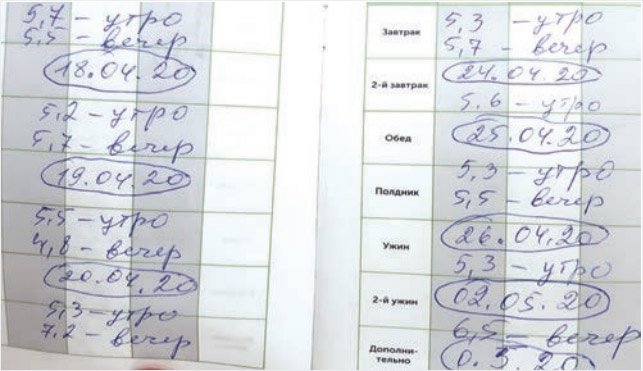 5,7 - утро
5,5 - вечер
18.04.20
5,2 - утро
5,7 - вечер
19.04.20
5,5 - утро
4,8 - вечер
20.04.20
5,3 - утро
7,2 - вечер
Завтрак
5,3 - утро
5,7 - вечер
24.04.20
2-й завтрак
5,6 - утро
25.04.20
Обед
5,3 - утро
Полдник
5,5 - вечер
26.04.20
Ужин
5,3 - утро
2-й ужин
02.05.20
6,5 - вечер
Дополни-
тельно